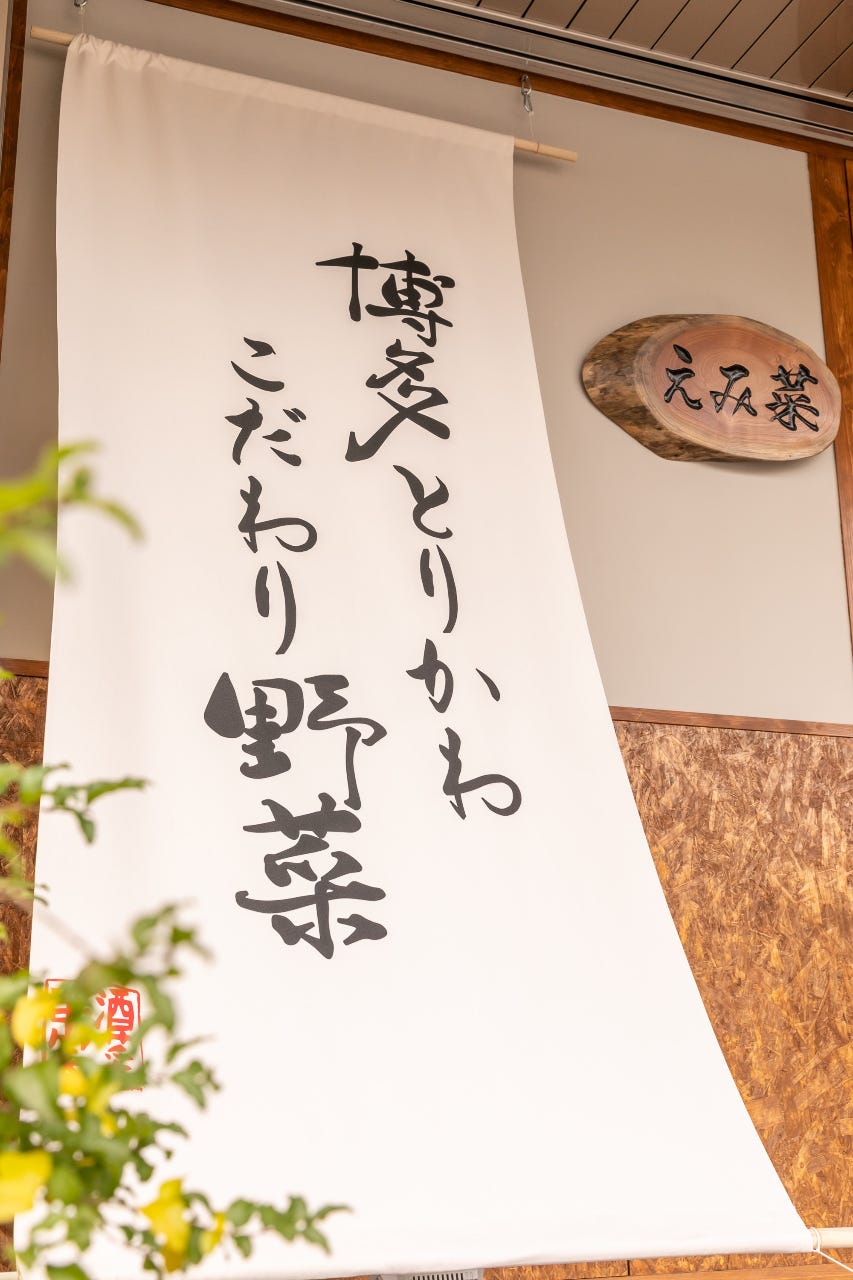 博多とりかわ
こだわり野菜
えみ菜
酒